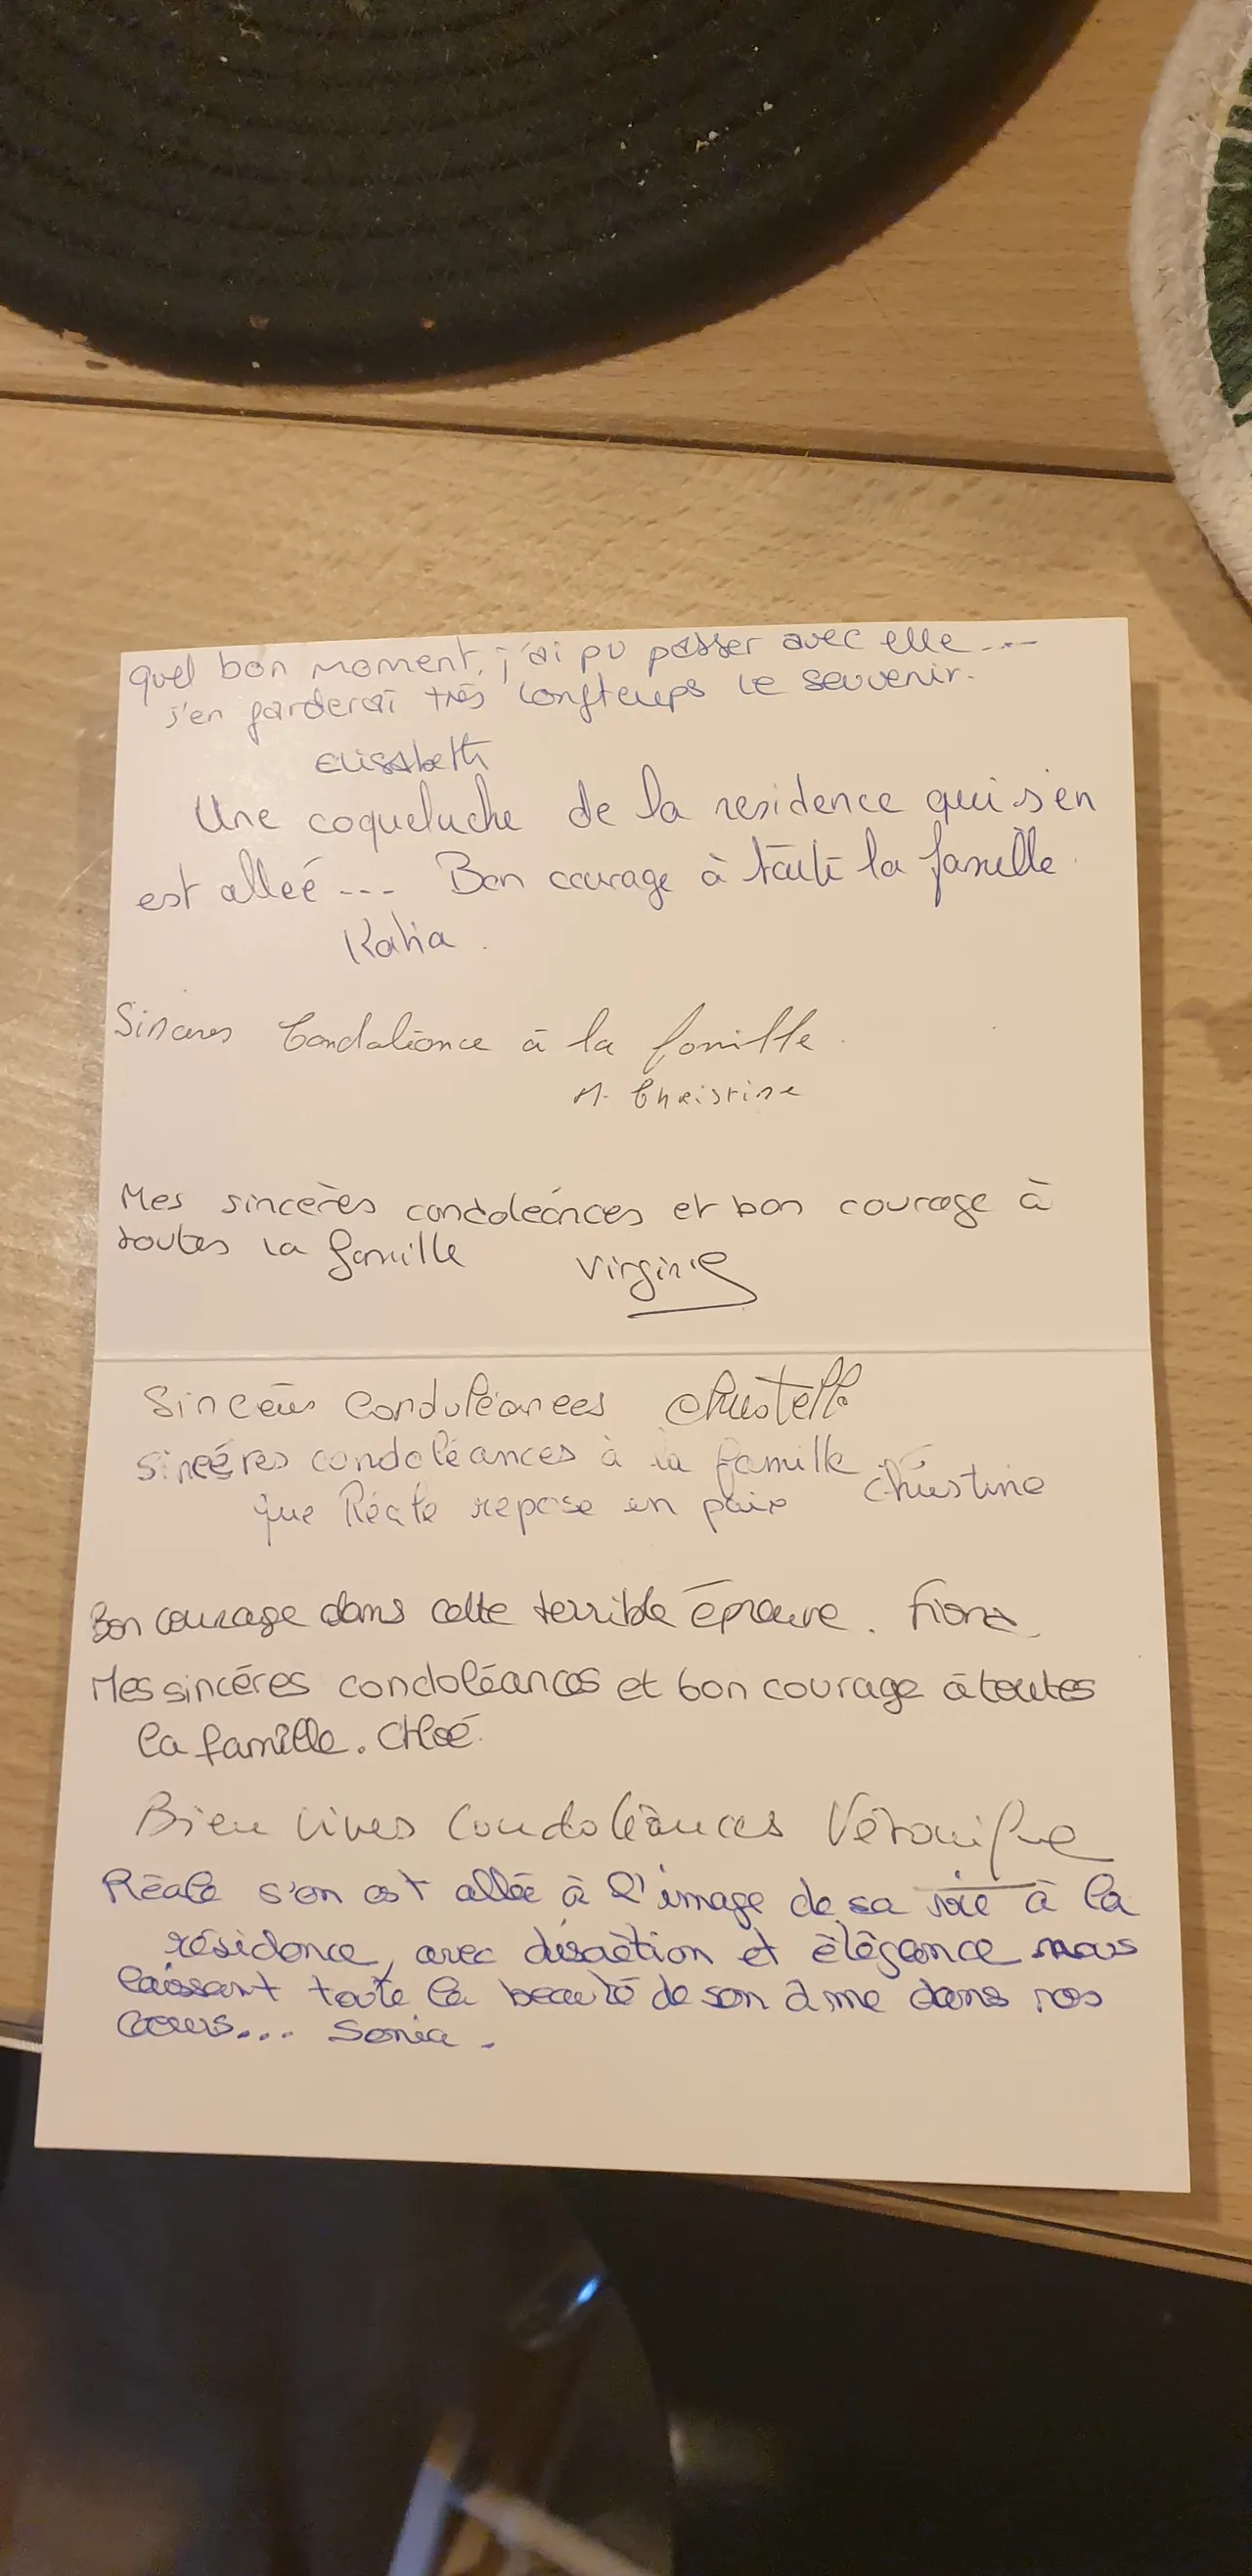 Quel bon moment, j'ai pu passer avec elle...
j'en garderai très longtemps le souvenir.
Elisabeth
Une coqueluche de la residence qui s'en
est alleé... Bon courage à toute la famille.
Katia.
Sincères Condoléance à la famille.
M. Christine
Mes sincères condoléances et bon courage à
toutes la famille Virginie
Sincères Condoléances Christelle
Sincères condoléances à la famille.
que Réale repose en paix Christine
Bon courage dans cette terrible épreuve. Fiona
Mes sincéres condoléances et bon courage à toutes
la famille. Chloé.
Bien vives Condoléances Véronique
Réale s'en est allée à l'image de sa vie à la
résidence, avec discrètion et èlègance nous
laissant toute la beauté de son âme dans nos
coeurs... Sonia.